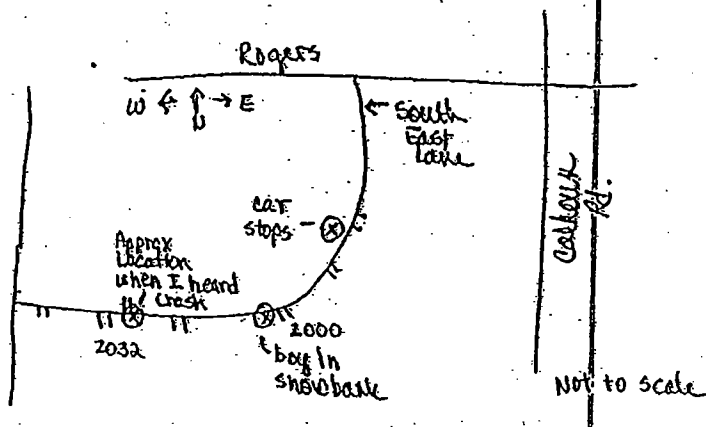 Rogers
W ← ↑ → E
N
← South
East
Lane
Calhoun
Rd.
car
stops
Approx
Location
when I heard
crash
2032
2000
boy in
snowbank
Not to scale